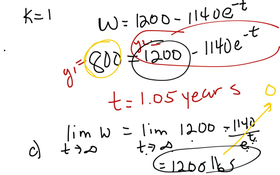 K=1 W = 1200 - 1140e^-t
y1= 800 = y1= 1200 - 1140e^-t
t = 1.05 years
0
c) lim t→∞ W = lim t→∞ 1200 - 1140/e^t
= 1200 lbs